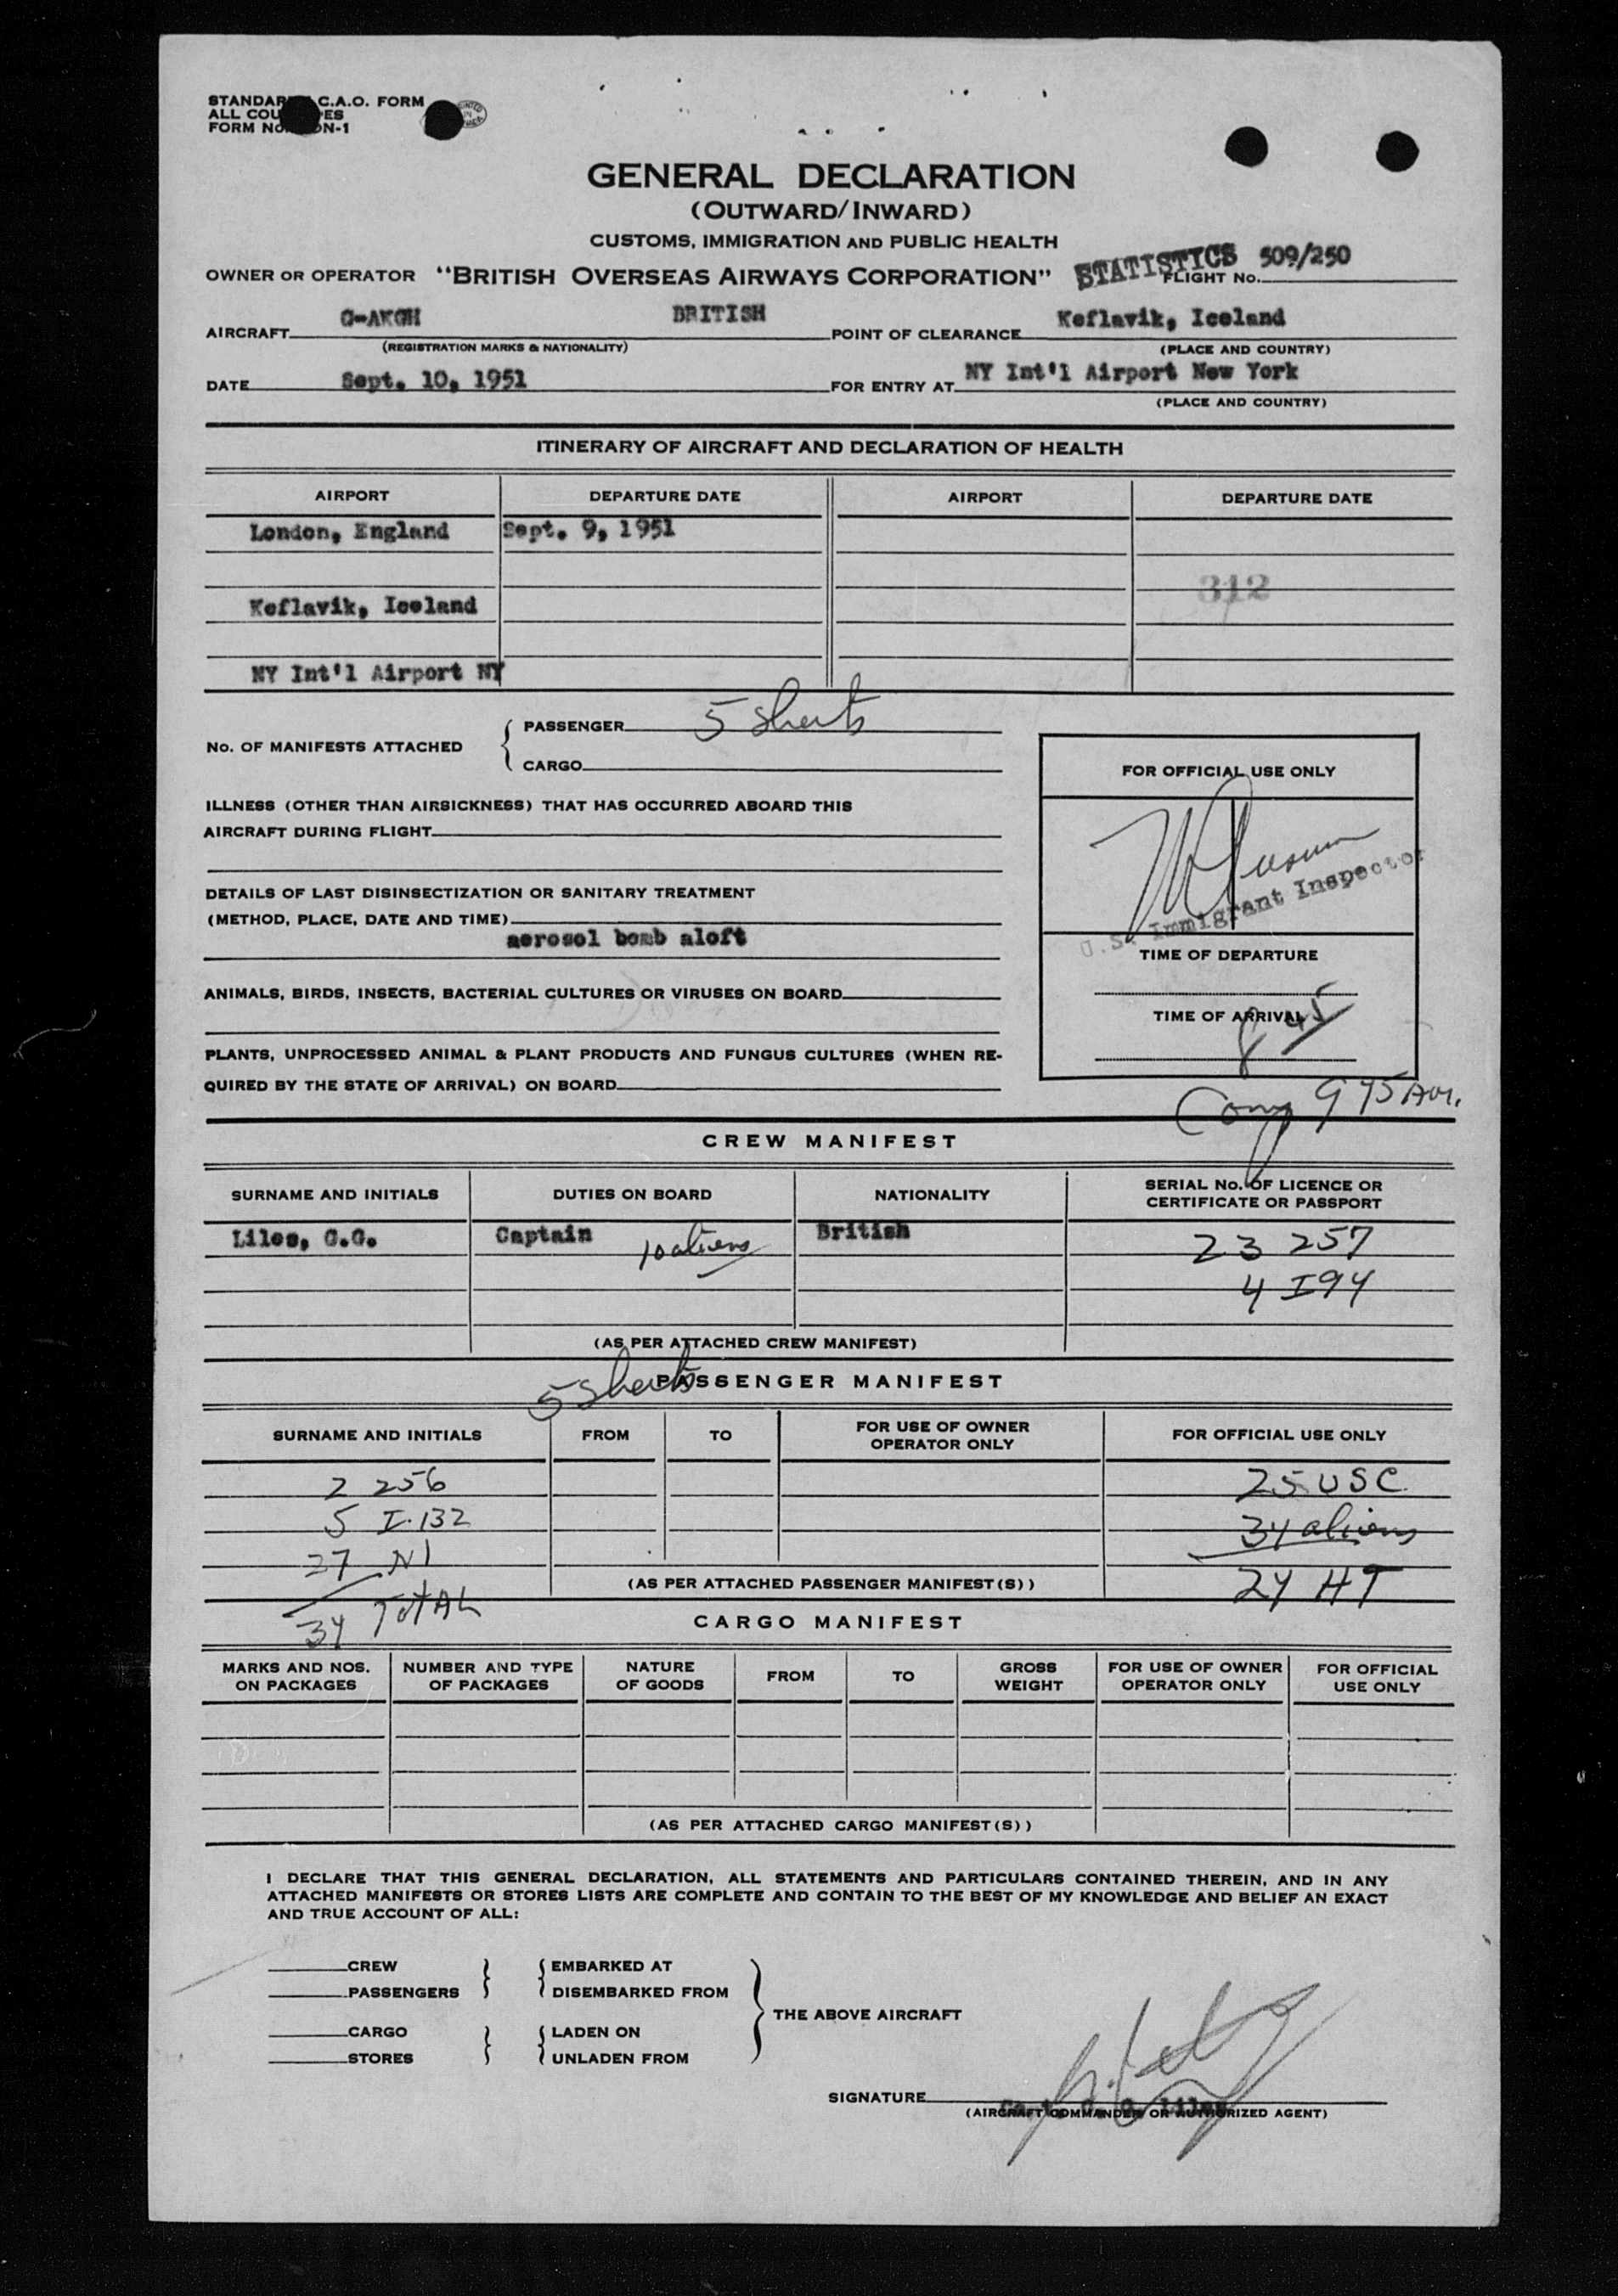 STANDARD I.C.A.O. FORM
ALL COU ES
FORM No. ON-1
GENERAL DECLARATION
(OUTWARD/INWARD)
CUSTOMS, IMMIGRATION AND PUBLIC HEALTH
OWNER OR OPERATOR "BRITISH OVERSEAS AIRWAYS CORPORATION" STATISTICS FLIGHT NO. 509/250
AIRCRAFT G-AKGH BRITISH POINT OF CLEARANCE Keflavik, Iceland
(REGISTRATION MARKS & NATIONALITY) (PLACE AND COUNTRY)
DATE Sept. 10, 1951 FOR ENTRY AT NY Int'l Airport New York
(PLACE AND COUNTRY)
ITINERARY OF AIRCRAFT AND DECLARATION OF HEALTH
AIRPORT DEPARTURE DATE AIRPORT DEPARTURE DATE
London, England Sept. 9, 1951
312
Keflavik, Iceland
NY Int'l Airport NY
No. OF MANIFESTS ATTACHED { PASSENGER 5 sheets
CARGO
FOR OFFICIAL USE ONLY
ILLNESS (OTHER THAN AIRSICKNESS) THAT HAS OCCURRED ABOARD THIS
AIRCRAFT DURING FLIGHT
U.S. Immigrant Inspector
DETAILS OF LAST DISINSECTIZATION OR SANITARY TREATMENT
(METHOD, PLACE, DATE AND TIME)
aerosol bomb aloft
TIME OF DEPARTURE
ANIMALS, BIRDS, INSECTS, BACTERIAL CULTURES OR VIRUSES ON BOARD
TIME OF ARRIVAL
8 45
PLANTS, UNPROCESSED ANIMAL & PLANT PRODUCTS AND FUNGUS CULTURES (WHEN RE-
QUIRED BY THE STATE OF ARRIVAL) ON BOARD
Comp 9 45 AM.
CREW MANIFEST
SURNAME AND INITIALS DUTIES ON BOARD NATIONALITY SERIAL No. OF LICENCE OR
CERTIFICATE OR PASSPORT
Liles, G.G. Captain 10 aliens British 23 257
4 I94
(AS PER ATTACHED CREW MANIFEST)
5 Sheets PASSENGER MANIFEST
SURNAME AND INITIALS FROM TO FOR USE OF OWNER
OPERATOR ONLY FOR OFFICIAL USE ONLY
2 256 25 USC
5 I-132 34 aliens
27 NI
(AS PER ATTACHED PASSENGER MANIFEST(S)) 24 HT
34 TOTAL
CARGO MANIFEST
MARKS AND NOS.
ON PACKAGES NUMBER AND TYPE
OF PACKAGES NATURE
OF GOODS FROM TO GROSS
WEIGHT FOR USE OF OWNER
OPERATOR ONLY FOR OFFICIAL
USE ONLY
(AS PER ATTACHED CARGO MANIFEST(S))
I DECLARE THAT THIS GENERAL DECLARATION, ALL STATEMENTS AND PARTICULARS CONTAINED THEREIN, AND IN ANY
ATTACHED MANIFESTS OR STORES LISTS ARE COMPLETE AND CONTAIN TO THE BEST OF MY KNOWLEDGE AND BELIEF AN EXACT
AND TRUE ACCOUNT OF ALL:
CREW } { EMBARKED AT
PASSENGERS DISEMBARKED FROM
} THE ABOVE AIRCRAFT
CARGO } { LADEN ON
STORES UNLADEN FROM
SIGNATURE
(AIRCRAFT COMMANDER OR AUTHORIZED AGENT)